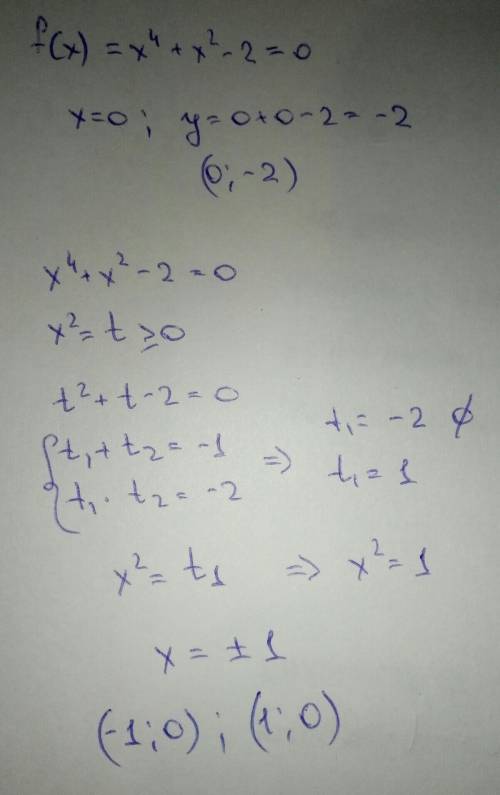 f(x) = x⁴ + x² - 2 = 0
x=0; y=0+0-2=-2
(0; -2)
x⁴ + x² - 2 = 0
x² = t ≥ 0
t² + t - 2 = 0
{ t₁ + t₂ = -1 ⇒ t₁ = -2 ∅
t₁ · t₂ = -2 t₁ = 1
x² = t₁ ⇒ x² = 1
x = ± 1
(-1; 0) ; (1; 0)